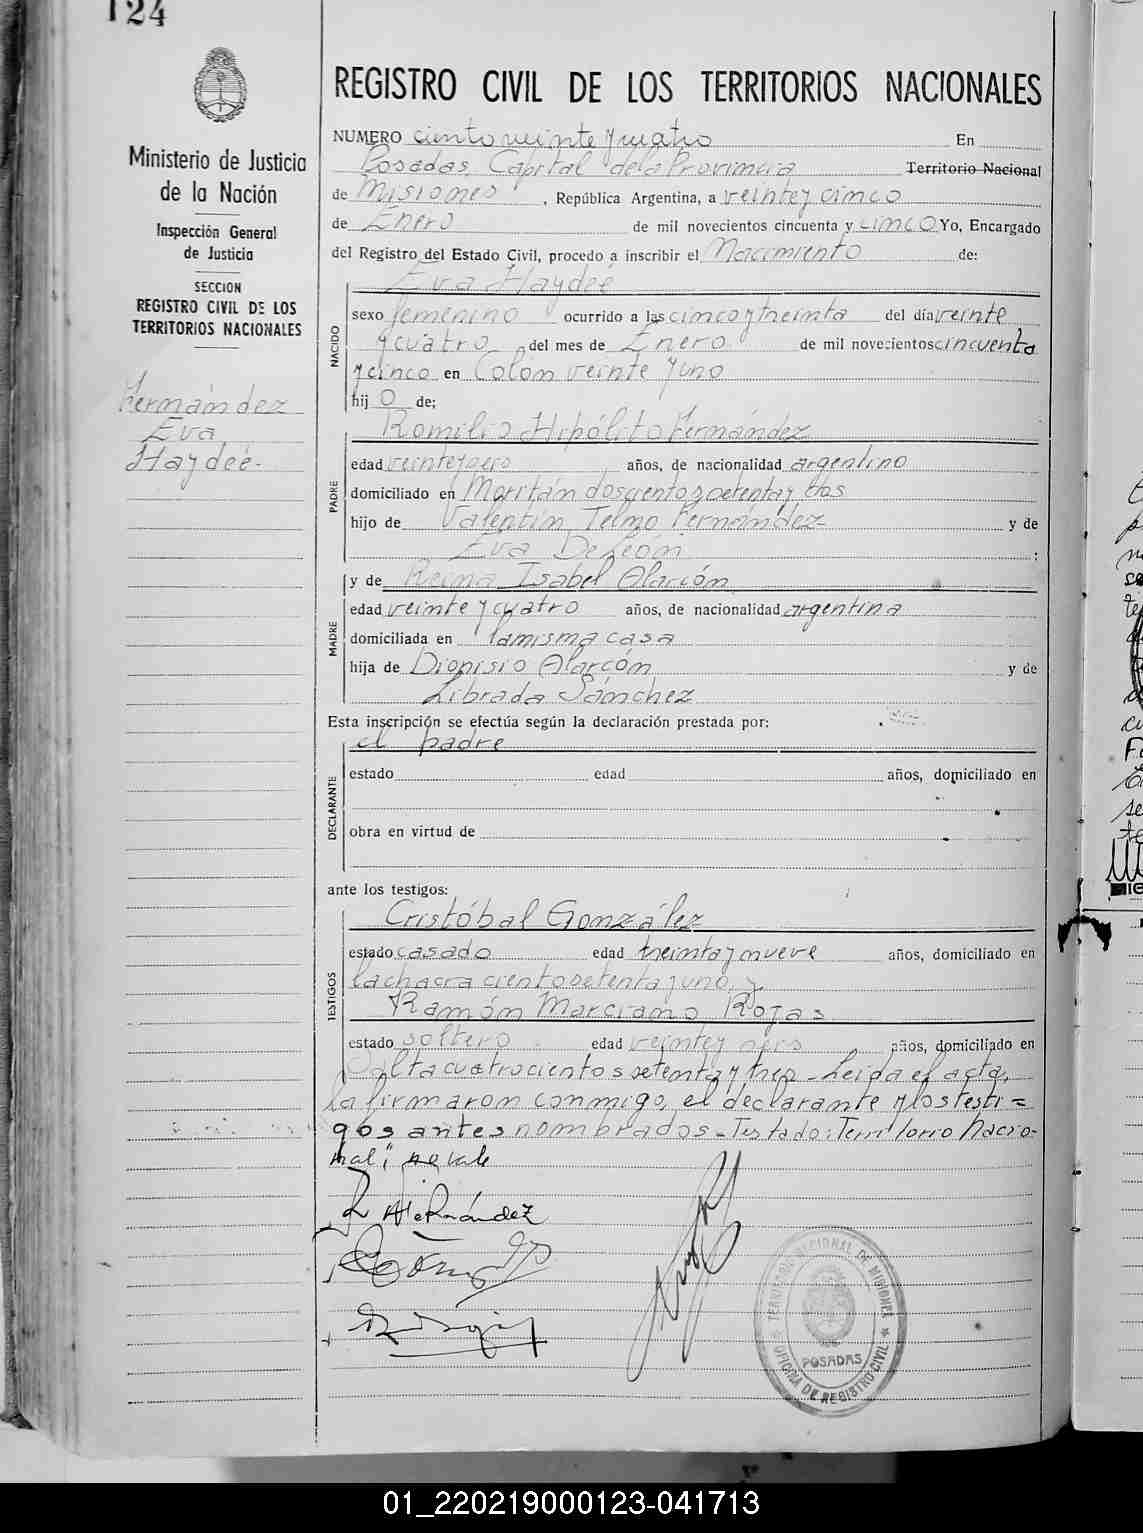 124
Ministerio de Justicia
de la Nación
Inspección General
de Justicia
SECCION
REGISTRO CIVIL DE LOS
TERRITORIOS NACIONALES
Fernández
Eva
Haydeé.
REGISTRO CIVIL DE LOS TERRITORIOS NACIONALES
NUMERO ciento veinte y cuatro En
Posadas, Capital de la Provincia Territorio Nacional
de Misiones, República Argentina, a veinte y cinco
de Enero de mil novecientos cincuenta y cinco Yo, Encargado
del Registro del Estado Civil, procedo a inscribir el Nacimiento de:
Eva Haydeé
NACIDO
sexo femenino ocurrido a las cinco y treinta del día veinte
y cuatro del mes de Enero de mil novecientos cincuenta
y cinco en Colón veinte y uno
hij O de;
PADRE
Romilio Hipólito Fernández
edad veinte y seis años, de nacionalidad argentino
domiciliado en doscientos setenta y dos
hijo de Valentín Telmo Fernández y de
Eva De León ;
MADRE
y de Reina Isabel Alarcón
edad veinte y cuatro años, de nacionalidad argentina
domiciliada en la misma casa
hija de Dionisio Alarcón y de
Librada Sánchez
Esta inscripción se efectúa según la declaración prestada por:
DECLARANTE
el padre
estado edad años, domiciliado en
obra en virtud de
ante los testigos:
TESTIGOS
Cristóbal González
estado casado edad treinta y nueve años, domiciliado en
la chacra ciento setenta y uno, y
Ramón Marciano Rojas
estado soltero edad veinte y seis años, domiciliado en
Salta cuatrocientos setenta y tres - Leida el acta,
la firmaron conmigo, el declarante y los testi=
gos antes nombrados - Testado: "Territorio Nacio-
nal", no vale
R H Fernández
TERRITORIO NACIONAL DE MISIONES
POSADAS
OFICINA DE REGISTRO CIVIL
01_220219000123-041713